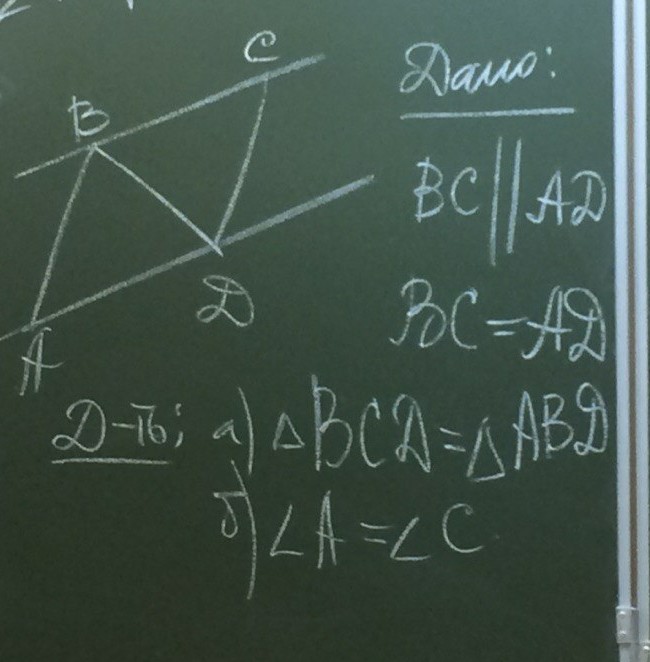 C
B
D
A
Дано:
BC || AD
BC = AD
Д-ть: а) △BCD = △ABD
б) ∠A = ∠C